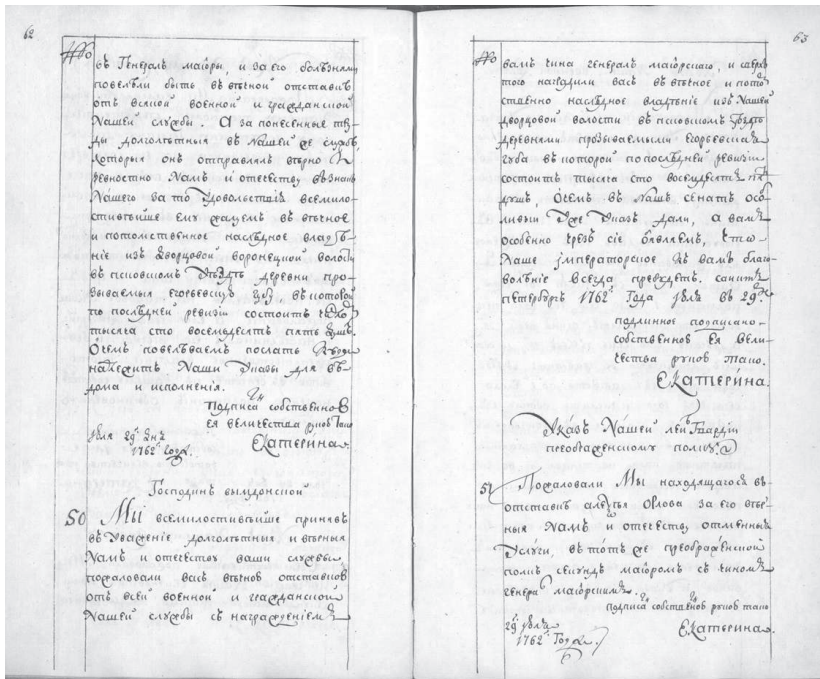 62
въ Генералъ маіоры, и за его болѣзнми
повелѣли быть въ вѣчной отставкѣ
отъ всякой военной и гражданской
Нашей службы. А за понесенные тру-
ды долголѣтныя въ Нашей же службѣ,
которыя онъ отправлялъ вѣрно и
ревностно Намъ и отечеству въ знакъ
Нашего за то удовольствія всемило-
стивѣйше ему жалуемъ въ вѣчное
и потомственное наслѣдное владѣ-
ніе изъ дворцовой воронецкой волости
въ псковскомъ уѣздѣ деревни про-
зываемыя егорьевскую губу, въ которой
по послѣдней ревизіи состоитъ
тысяча сто восемдесятъ пять душъ.
О чемъ повелѣваемъ послать куды
надлежитъ Наши указы для вѣ-
дома и исполненія.
Подписа собственною
ея величества рукою тако
Екатерина.
Іюля 29г дня
1762 Года.
Господинъ вымдонской
50 Мы всемилостивѣйше принявъ
въ уваженіе долголѣтныя и вѣрныя
Намъ и отечеству ваши службы
пожаловали васъ вѣчною отставкою
отъ всей военной и гражданской
Нашей службы съ награжденіемъ
63
вамъ чина генералъ маіорскаго, и сверхъ
того наградили васъ въ вѣчное и пото-
ственно наслѣдное владѣніе изъ Нашей
дворцовой волости въ псковскомъ уѣздѣ
деревнями прозываемыми егорьевская
губа въ которой по послѣдней ревизіи
состоитъ тысяча сто восемдесятъ пять
душъ, о чемъ въ Нашъ сенатъ осо-
ливый уже указъ дали, а вамъ
особенно чрезъ сіе объявляемъ, что
Наше императорское къ вамъ благо-
волѣніе всегда пребудетъ. санктъ
петербургъ 1762 Года іюля въ 29 д
подлинное подписано
собственною Ея Вели-
чества рукою тако.
Екатерина.
Указъ Нашей лейбъ Гвардіи
преображенскому полку
51 Пожаловали Мы находящагося въ
отставкѣ алексѣя Орлова за его вѣр-
ныя Намъ и отечеству отменныя
услуги, въ тотъ же преображенской
полкъ секундъ маіоромъ съ чиномъ
генерал маіорскимъ.
подписа собственою рукою тако
Екатерина.
29г іюля
1762 Года.